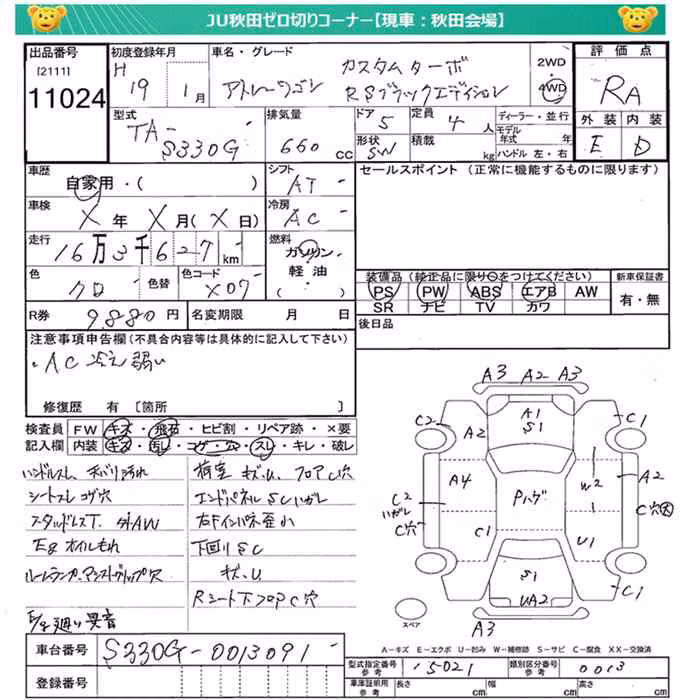 JU秋田ゼロ切りコーナー【現車：秋田会場】
出品番号 初度登録年月 車名・グレード 2WD 評価点
[2111] H カスタムターボ
11024 19 1月 アトレーワゴン RSブラックエディション 4WD RA
型式 排気量 ドア 定員 ディーラー・並行 外装 内装
TA- 5 4人 モデル年式 年
S330G 660cc 形状 SW 積載 kg ハンドル 左・右 E D
車歴 シフト セールスポイント（正常に機能するものに限ります）
自家用・( ) AT
車検 冷房
X年 X月(X日) AC
走行 燃料
16万3千627km ガソリン
色 色替 色コード 軽油 装備品（純正品に限り○をつけてください） 新車保証書
クロ X07 ( ) PS PW ABS エアB AW 有・無
SR ナビ TV カワ
R券 9880円 名変期限 月 日 後日品
注意事項申告欄(不具合内容等は具体的に記入して下さい)
・AC冷え弱い
修復歴 有 〔箇所 〕
検査員 FW キズ・飛石・ヒビ割・リペア跡・×要
記入欄 内装 キズ・汚レ・コゲ・穴・スレ・キレ・破レ
ハンドルスレ、天バリ汚れ
シートスレ コゲ穴
スタッドレスT. 外AW
Egオイルもれ
ルームランプ、アシストグリップ穴
E/g廻り異音
荷室キズ、U、フロアC穴
エンドパネルSCハガレ
右Fインパネ歪小
下回りSC
キズ、U
Rシート下フロアC穴
A3 A2 A3
C2 A1 C1
A2 S1
A4 Pハゲ W2 A2
C2
ハガレ
C穴 C穴大
C1 U1
S1
UA2 C1
スペア A3
A－キズ E－エクボ U－凹み W－補修跡 S－サビ C－腐食 XX－交換済
車台番号 S330G-0013091
登録番号
型式指定番号 参考 15021 類別区分番号 参考 0013
車庫証明用 参考 長さ cm 幅 cm 高さ cm